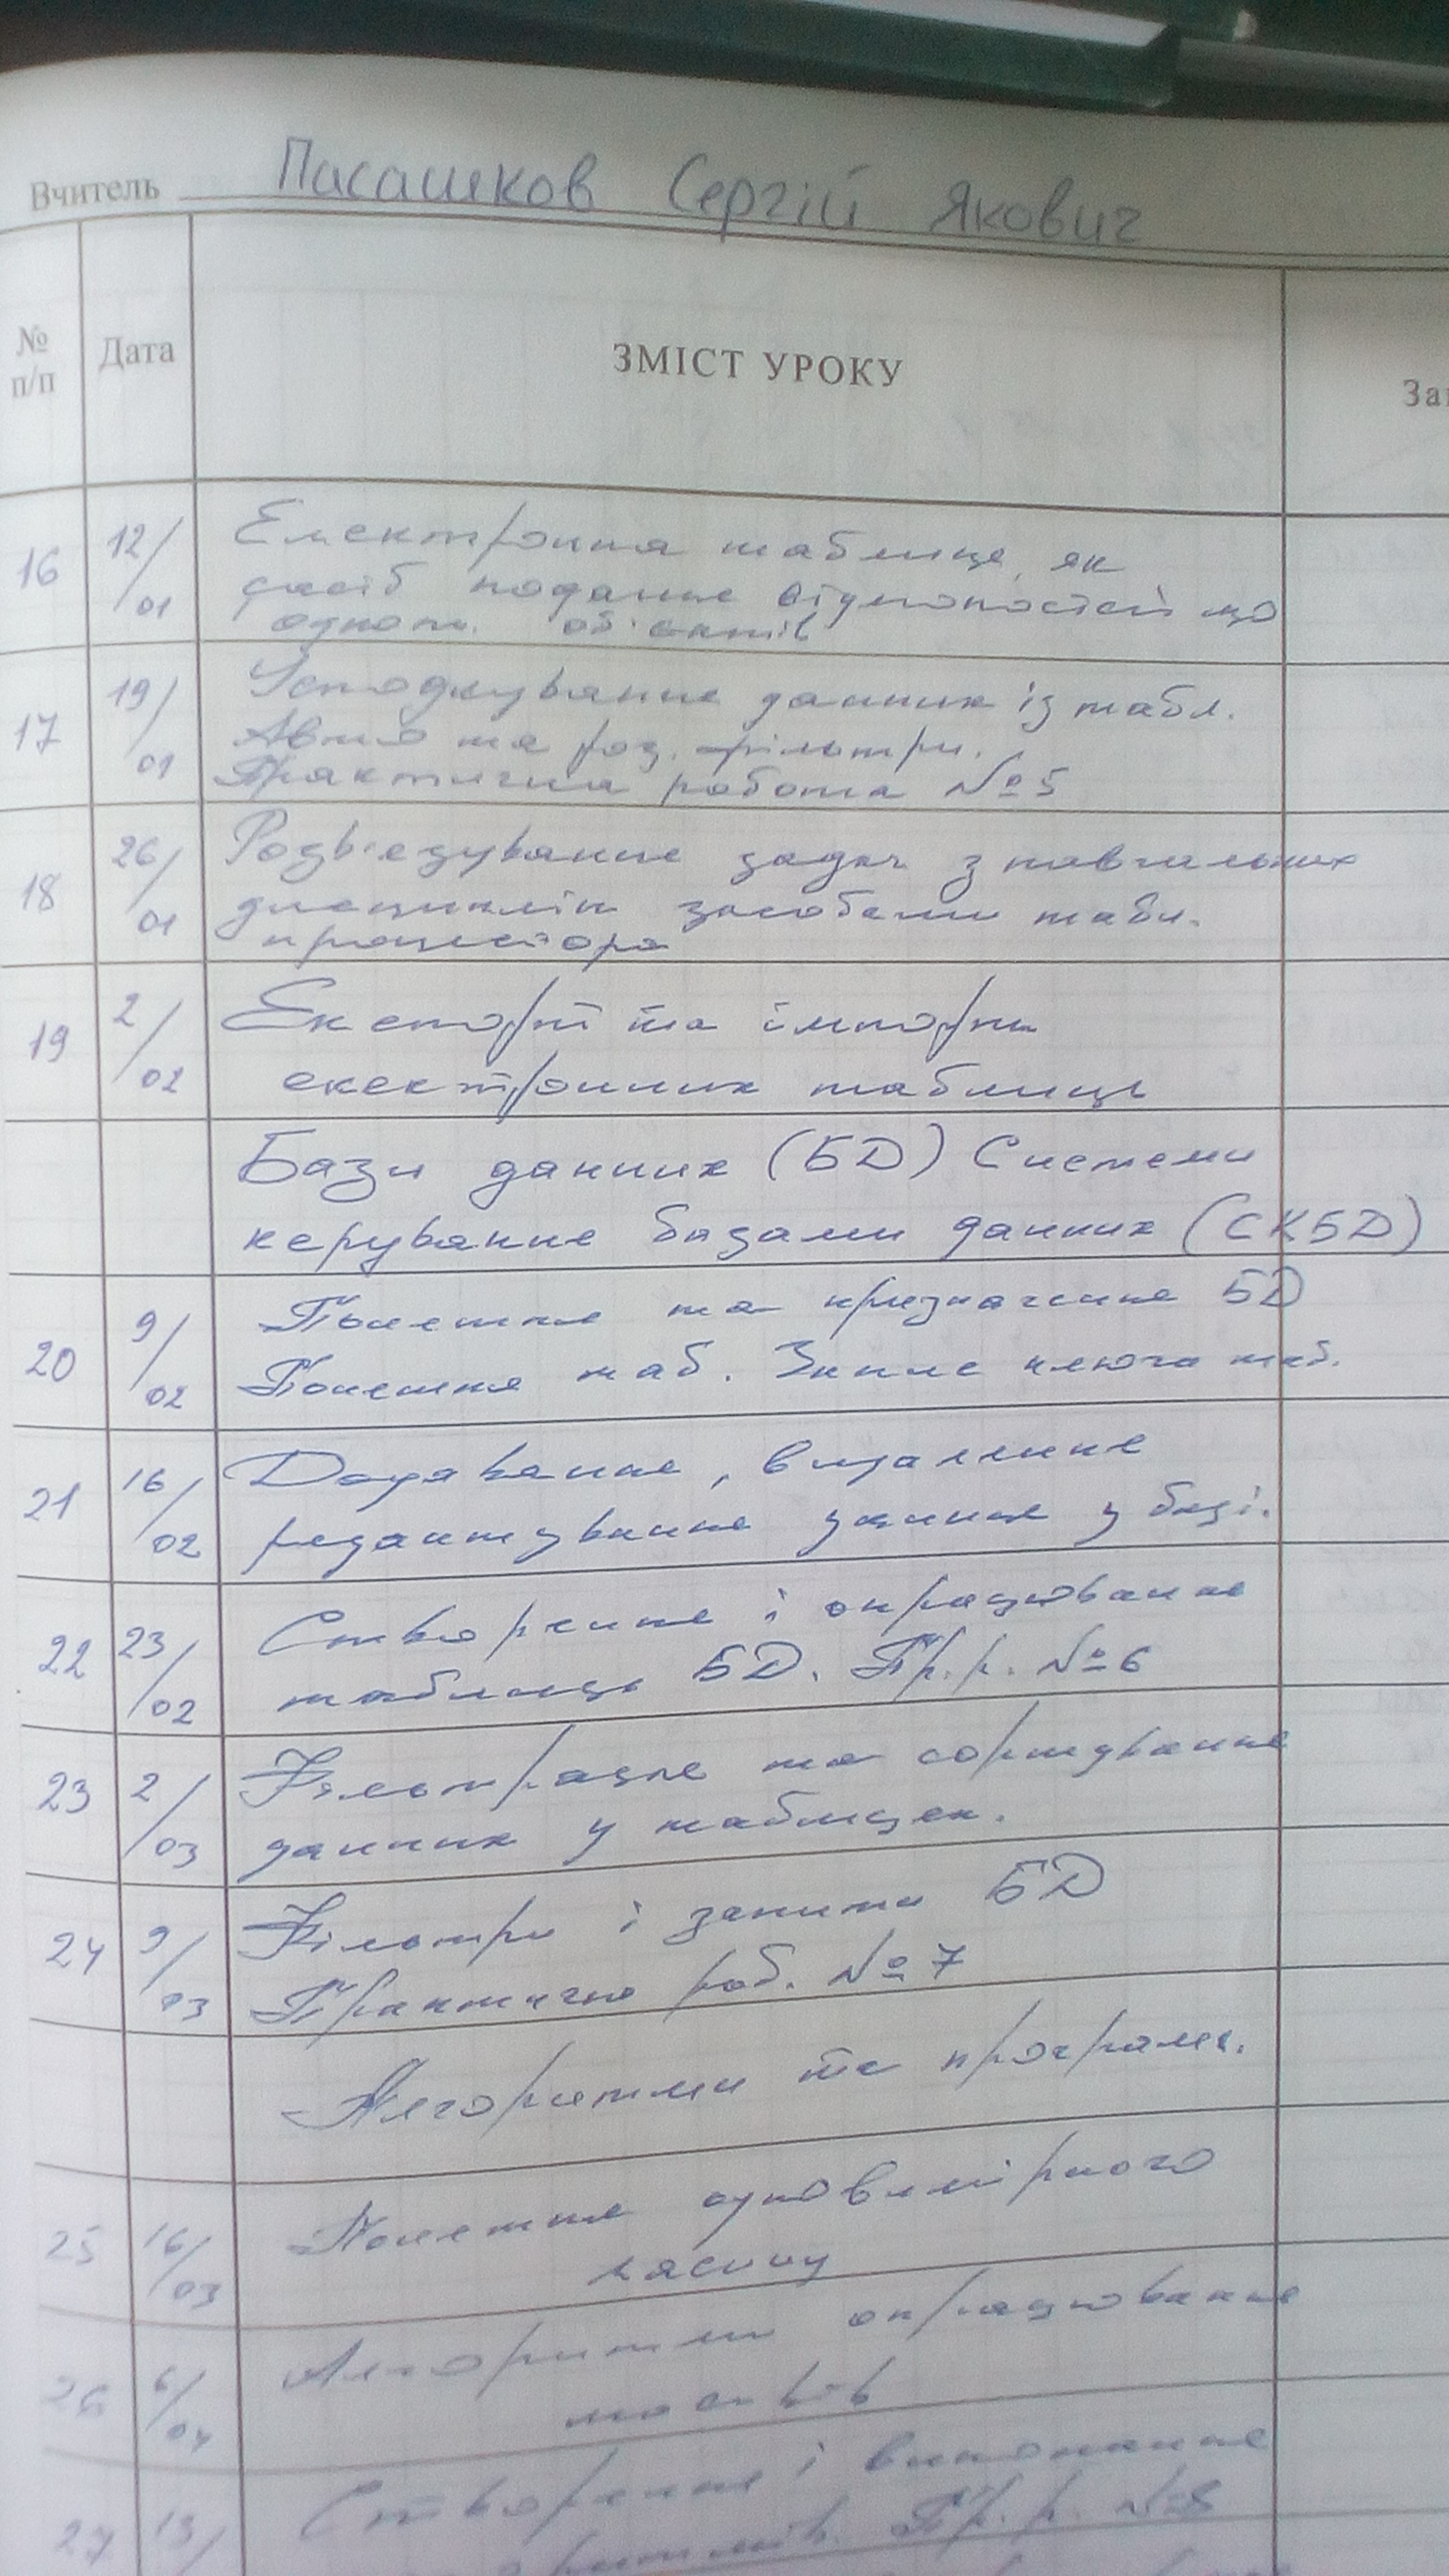 Вчитель Пасашков Сергій Якович
№ п/п Дата ЗМІСТ УРОКУ
16 12/01 Електронна таблиця, як
засіб подання відомостей що
однотип. об'єктів
17 19/01 Упорядкування данних із табл.
Авто та роз. фільтри.
Практична робота №5
18 26/01 Розв'язування задач з навчальних
дисциплін засобами табл.
процесора
19 2/02 Експорт та імпорт
електронних таблиць
Бази данних (БД) Системи
керування базами данних (СКБД)
20 9/02 Поняття та призначення БД
Поняття таб. ключа таб.
21 16/02 Додавання, видалення
редактування у базі.
22 23/02 Створення і опрацювання
таблиць БД. Пр.р. №6
23 2/03 Фільтрація та сортування
данних у таблицях.
24 9/03 Фільтри і запити БД
Практична роб. №7
Алгоритми та програми.
25 16/03 Поняття одновимірного
масиву
26 6/04 Алгоритми опрацювання
масивів
27 13/ Створення і виконання
Пр.р. №8